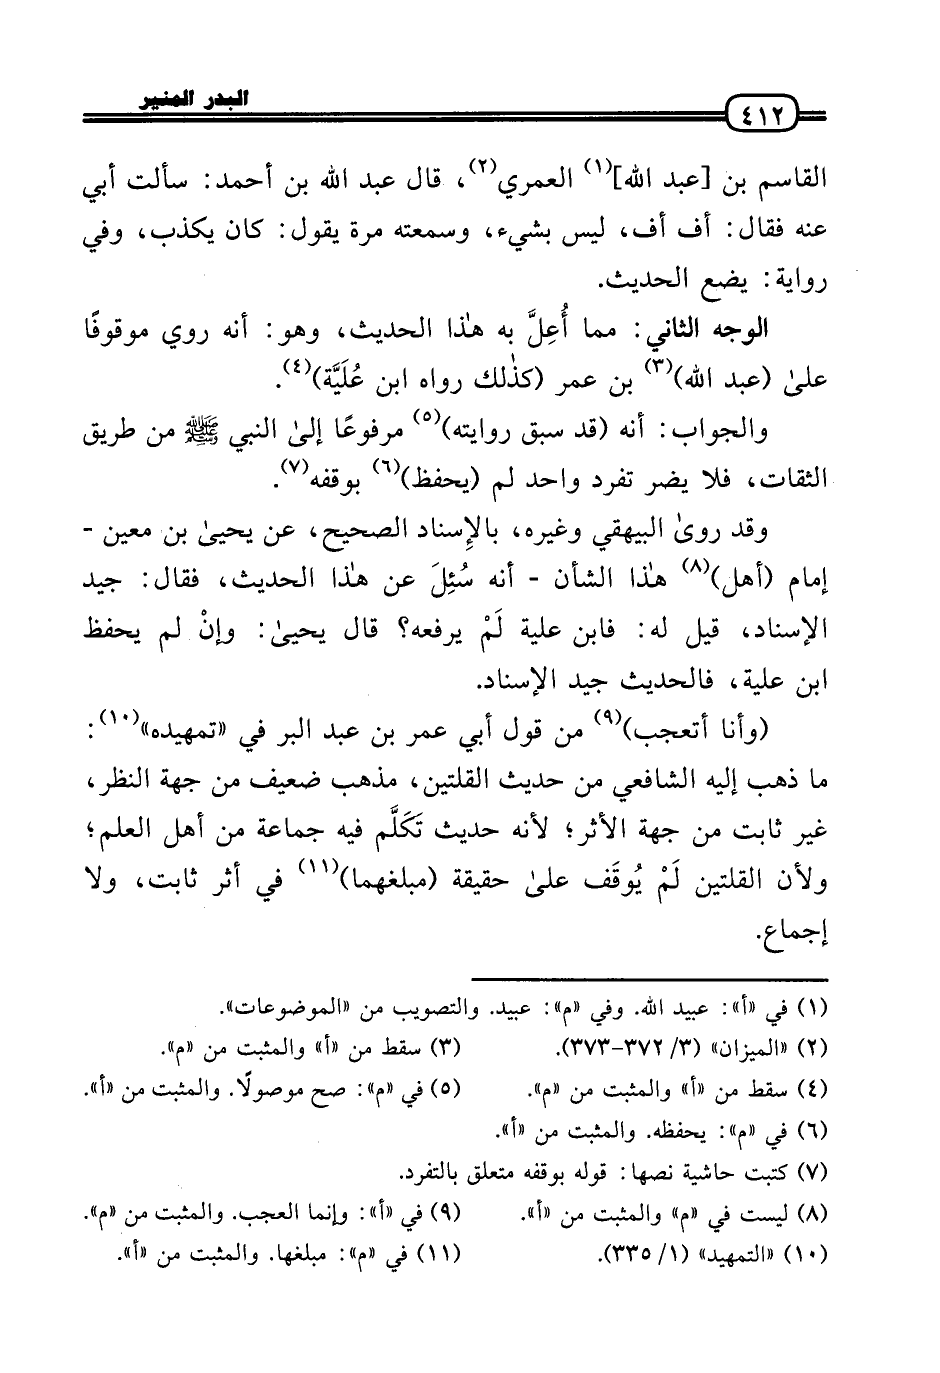 ٤١٢
البدر المنير
القاسم بن [عبد الله](١) العمري(٢)، قال عبد الله بن أحمد: سألت أبي
عنه فقال: أف أف، ليس بشيء، وسمعته مرة يقول: كان يكذب، وفي
رواية: يضع الحديث.
الوجه الثاني: مما أُعِلَّ به هذا الحديث، وهو: أنه روي موقوفًا
علىٰ (عبد الله)(٣) بن عمر (كذٰلك رواه ابن عُلَيَّة)(٤).
والجواب: أنه (قد سبق روايته)(٥) مرفوعًا إلىٰ النبي ﷺ من طريق
الثقات، فلا يضر تفرد واحد لم (يحفظ)(٦) بوقفه(٧).
وقد روىٰ البيهقي وغيره، بالإِسناد الصحيح، عن يحيىٰ بن معين -
إمام (أهل)(٨) هٰذا الشأن - أنه سُئِلَ عن هٰذا الحديث، فقال: جيد
الإسناد، قيل له: فابن علية لَمْ يرفعه؟ قال يحيىٰ: وإنْ لم يحفظ
ابن علية، فالحديث جيد الإسناد.
(وأنا أتعجب)(٩) من قول أبي عمر بن عبد البر في «تمهيده»(١٠):
ما ذهب إليه الشافعي من حديث القلتين، مذهب ضعيف من جهة النظر،
غير ثابت من جهة الأثر؛ لأنه حديث تَكَلَّم فيه جماعة من أهل العلم؛
ولأن القلتين لَمْ يُوقَف علىٰ حقيقة (مبلغهما)(١١) في أثر ثابت، ولا
إجماع.
(١) في «أ»: عبيد الله. وفي «م»: عبيد. والتصويب من «الموضوعات».
(٢) «الميزان» (٣/ ٣٧٢-٣٧٣). (٣) سقط من «أ» والمثبت من «م».
(٤) سقط من «أ» والمثبت من «م». (٥) في «م»: صح موصولًا. والمثبت من «أ».
(٦) في «م»: يحفظه. والمثبت من «أ».
(٧) كتبت حاشية نصها: قوله بوقفه متعلق بالتفرد.
(٨) ليست في «م» والمثبت من «أ». (٩) في «أ»: وإنما العجب. والمثبت من «م».
(١٠) «التمهيد» (١/ ٣٣٥). (١١) في «م»: مبلغها. والمثبت من «أ».